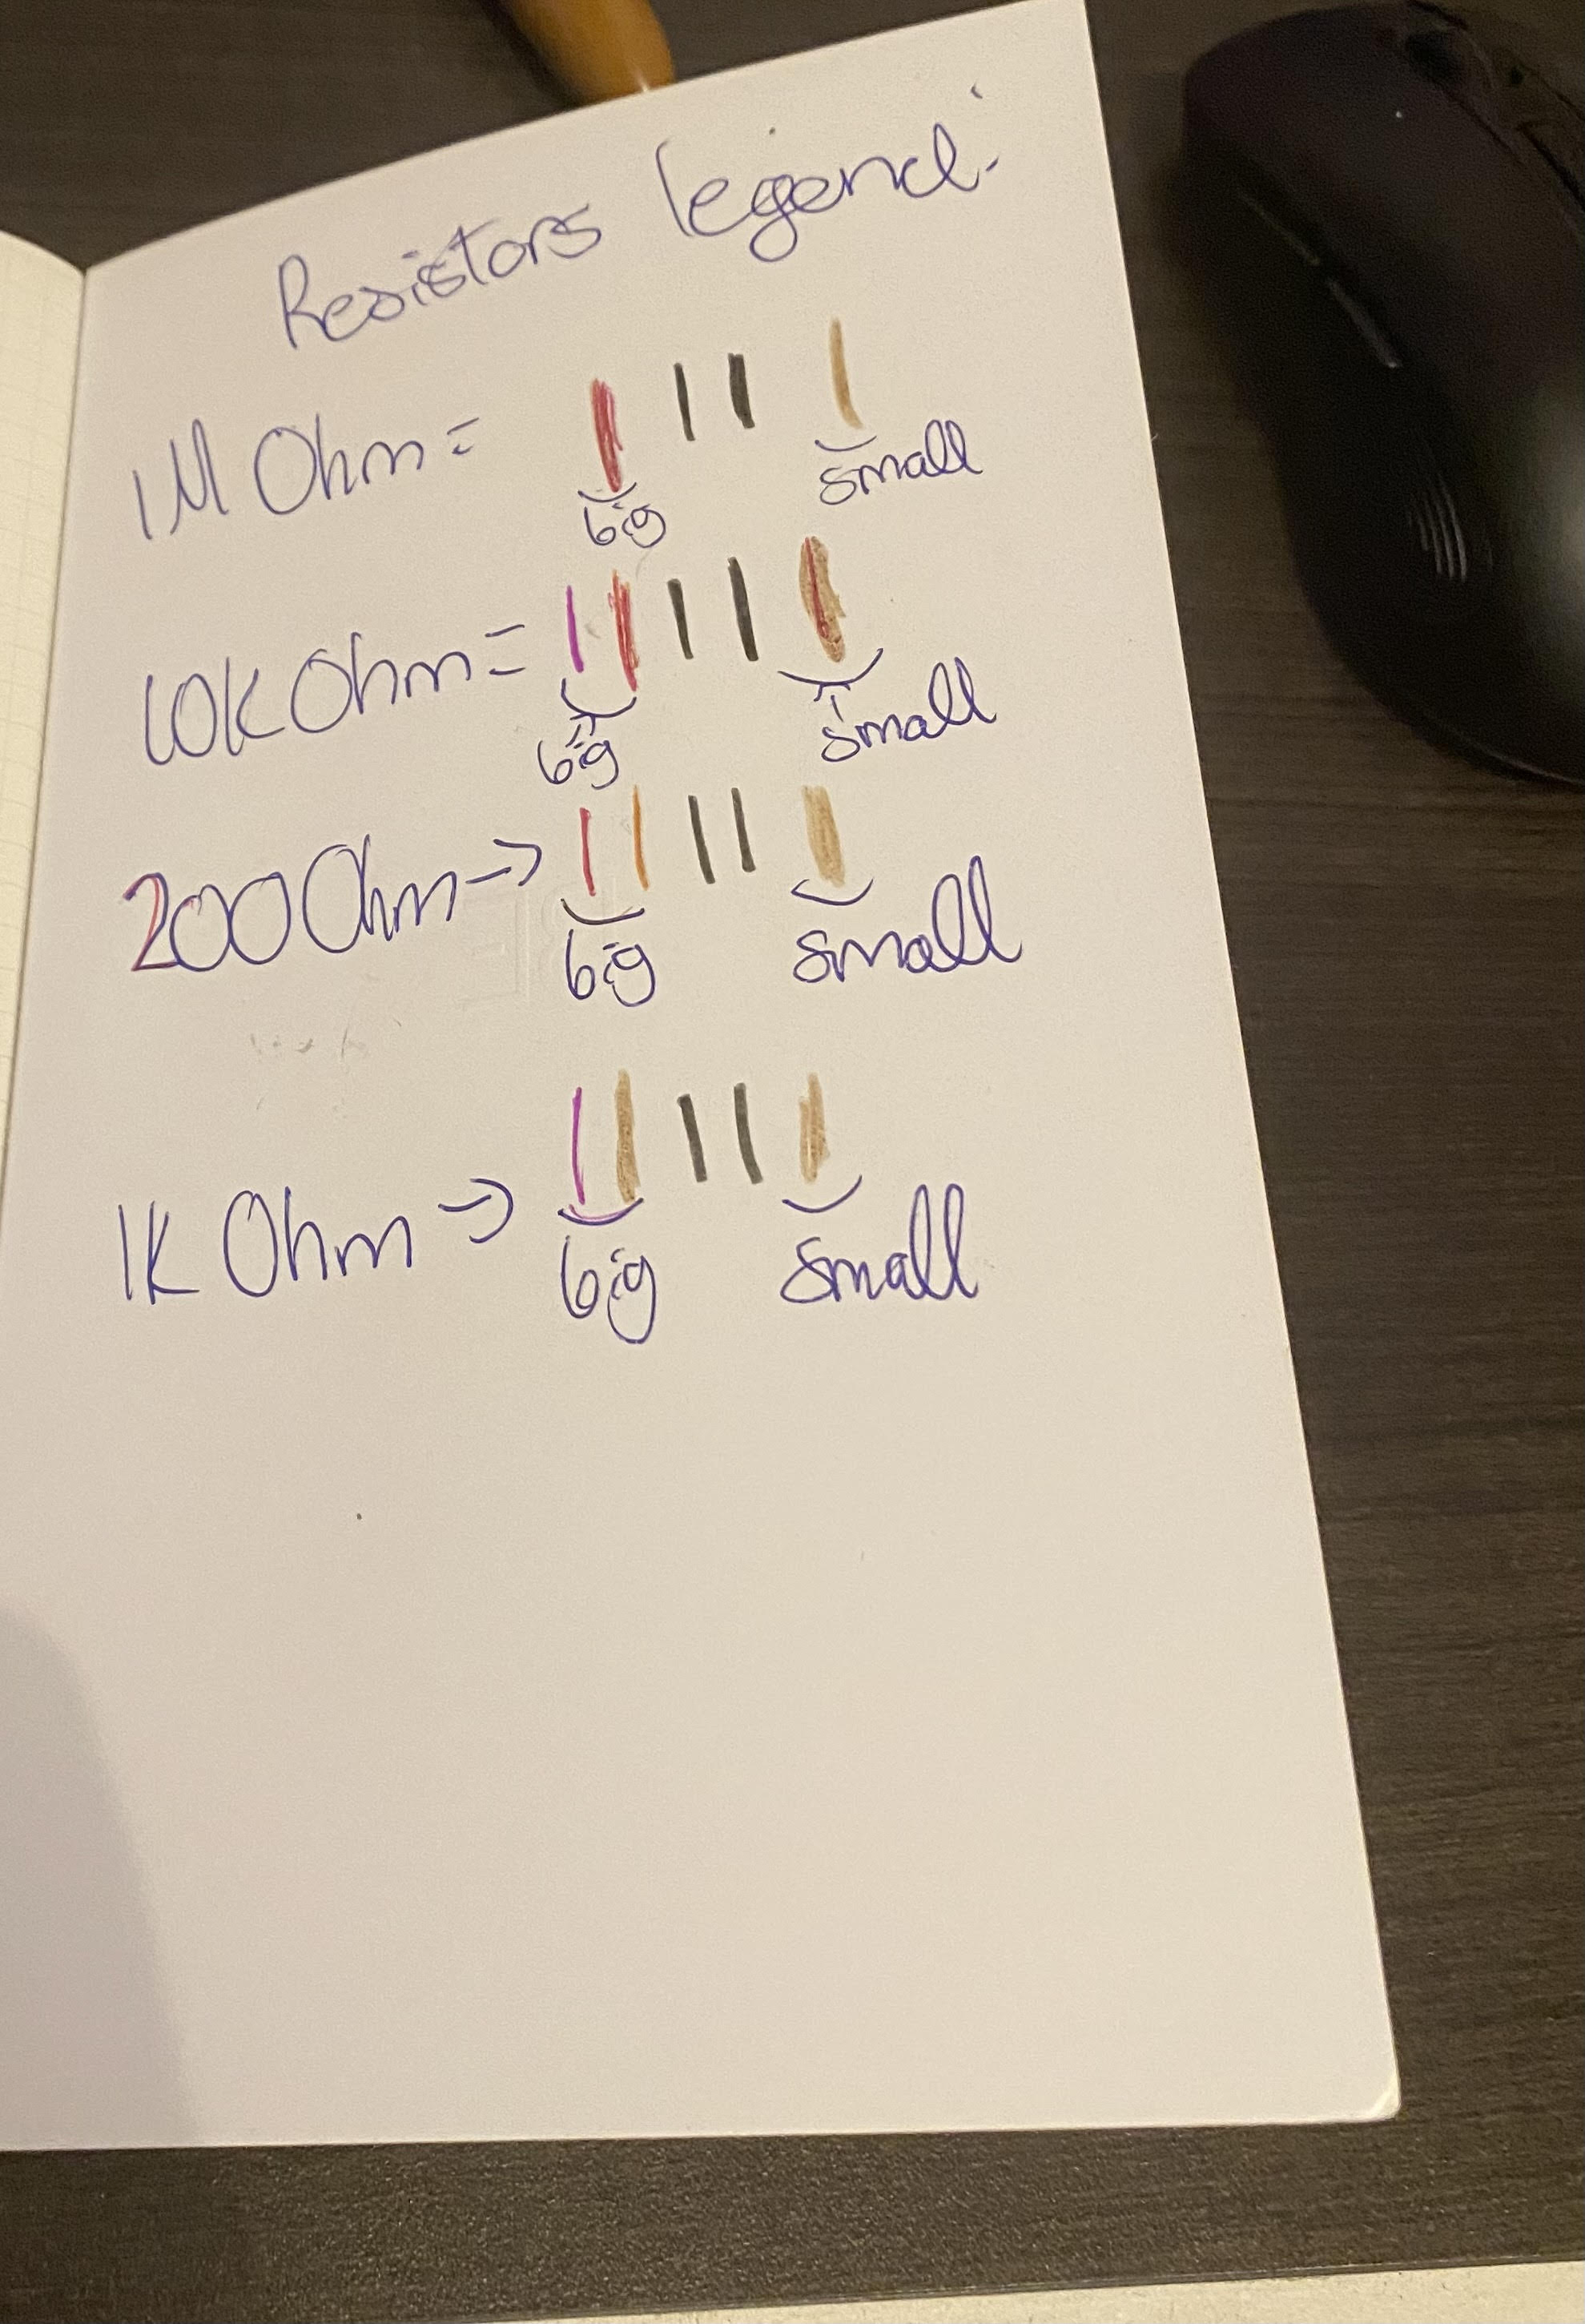 Resistors legend:
1M Ohm =
big small
10K Ohm =
big small
200 Ohm ->
big small
1K Ohm ->
big small